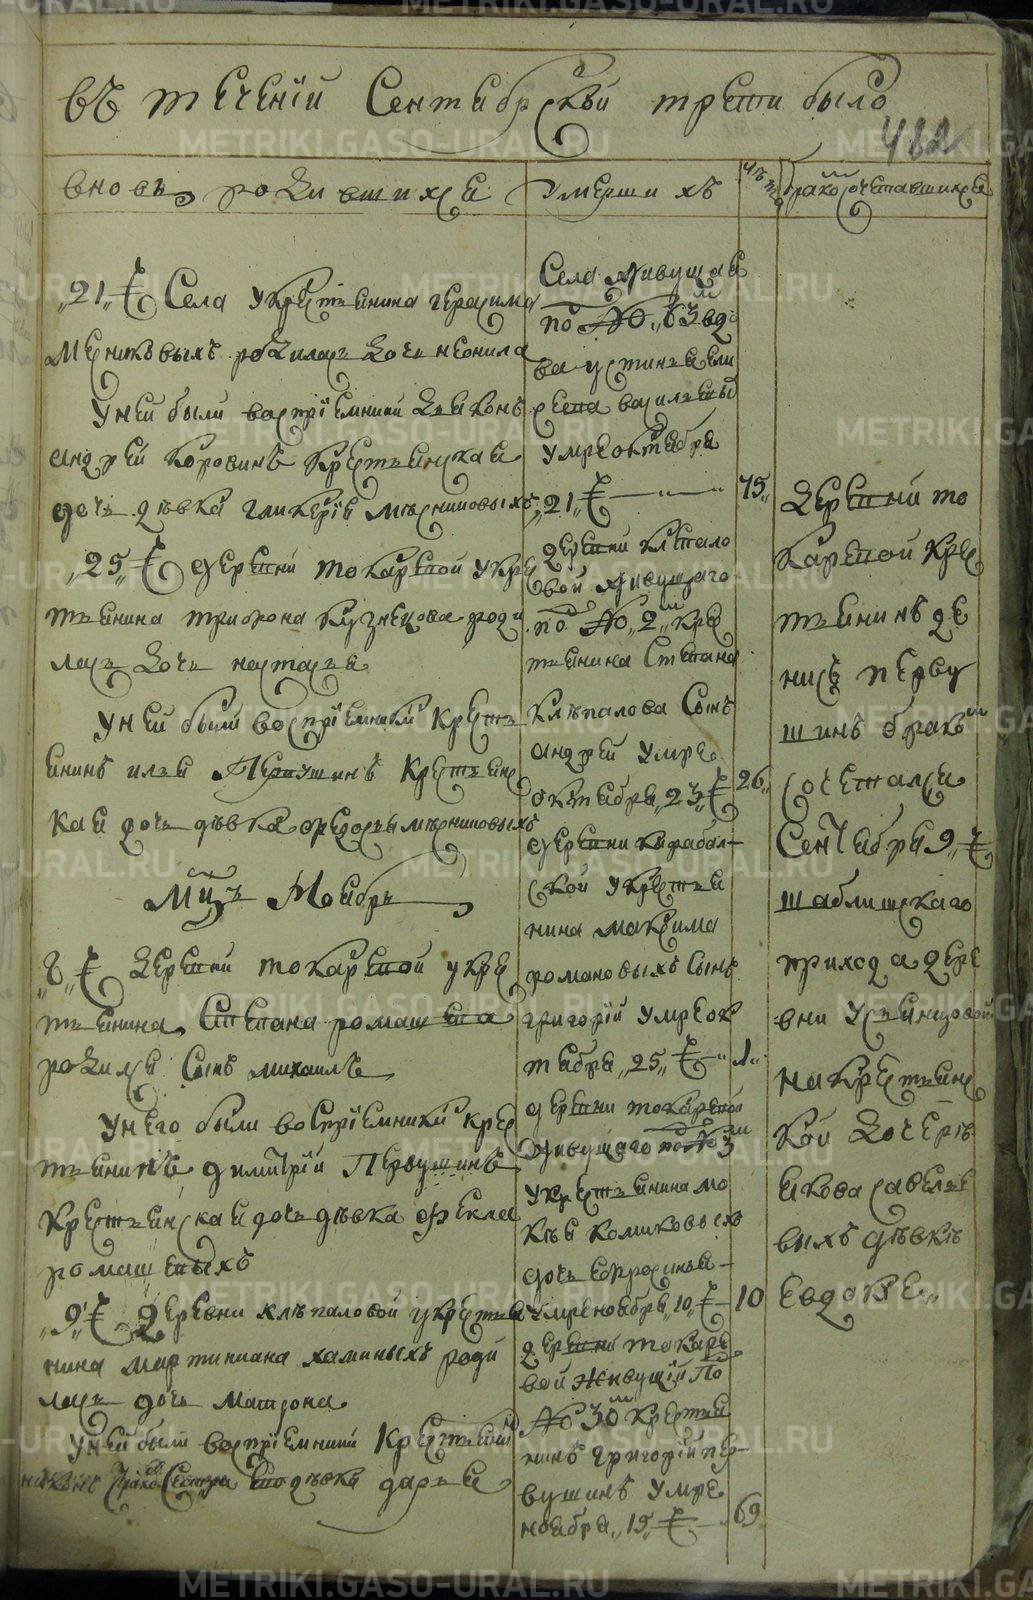 въ течении Сентябрской трети было
482
вновь родившихся
умерших
чи
браком сочетавшихся
"21" Села у крестьянина герасима
Мерниковыхъ родилась дочь неонила
у ней были восприемники дьяконъ
андрей коровинъ крестьянская
дочь дѣвка гликерия мѣрниковыхъ
"25" деревни токаревой у кре
стьянина трифона кузнецова роди
лась дочь настасья
у ней были восприемники крестья
янинъ илья Первушинъ крестьянс
кая дочь дѣвка федосья мѣрниковыхъ
Мцъ Ноябрь
"8" деревни токаревой у кре
стьянина Степана ромашева
родился сынъ михаилъ
у него были восприемники кре
стьянинъ димитрий Первушинъ
крестьянская дочь дѣвка фекла
ромашевыхъ
"9" деревни клѣпаловой у крестья
нина мартиниана хаминыхъ роди
лась дочь матрона
у ней были восприемники крестьянинъ
дѣвка дарья
Села живущая
по № 63й вдо
ва устинья ели
васильевы
умре октября
"21" 75
деревни клепало
вой живущаго
по № 2й кре
стьянина Степана
клѣпалова Сынъ
андрей умре
октября "23" 26
деревни карабол
ской у крестья
нина максима
романовыхъ Сынъ
григорий умре ок
тября "25" 1
деревни токаревой
живущаго по № 3й
у крестьянина мо
кѣя комиковыхъ
дочь ефросинья
умре ноября "10" 10
деревни токаре
вой живущий По
№ 30й крестья
нинъ григорий пер
вушинъ умре
ноября "15" 69
деревни то
каревой кре
стьянинъ де
нисъ перву
шинъ бракомъ
сочетался
Сентября 9
шаблишскаго
прихода дере
вни Усъянцовой
на крестьянс
кой дочерѣ
якова савелье
выхъ дѣвкѣ
Евдокѣе